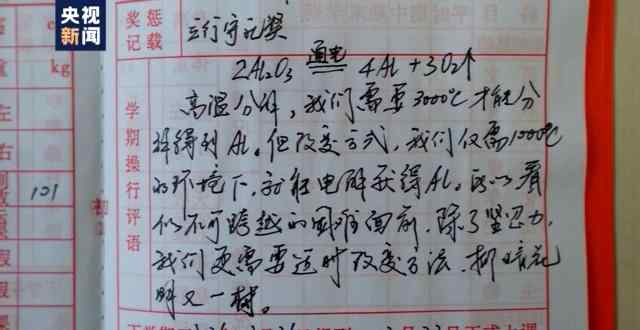 央视
新闻
奖惩
记载
kg
左
右
101
初
学期操行评语
2Al₂O₃ 通电 4Al+3O₂↑
高温分解，我们需要3000℃才能分
解得到Al。但改变方式，我们仅需1000℃
的环境下，就能电解获得Al。所以看
似不可跨越的困难面前，除了坚忍力，
我们更需要适时改变方法，柳暗花
明又一村。